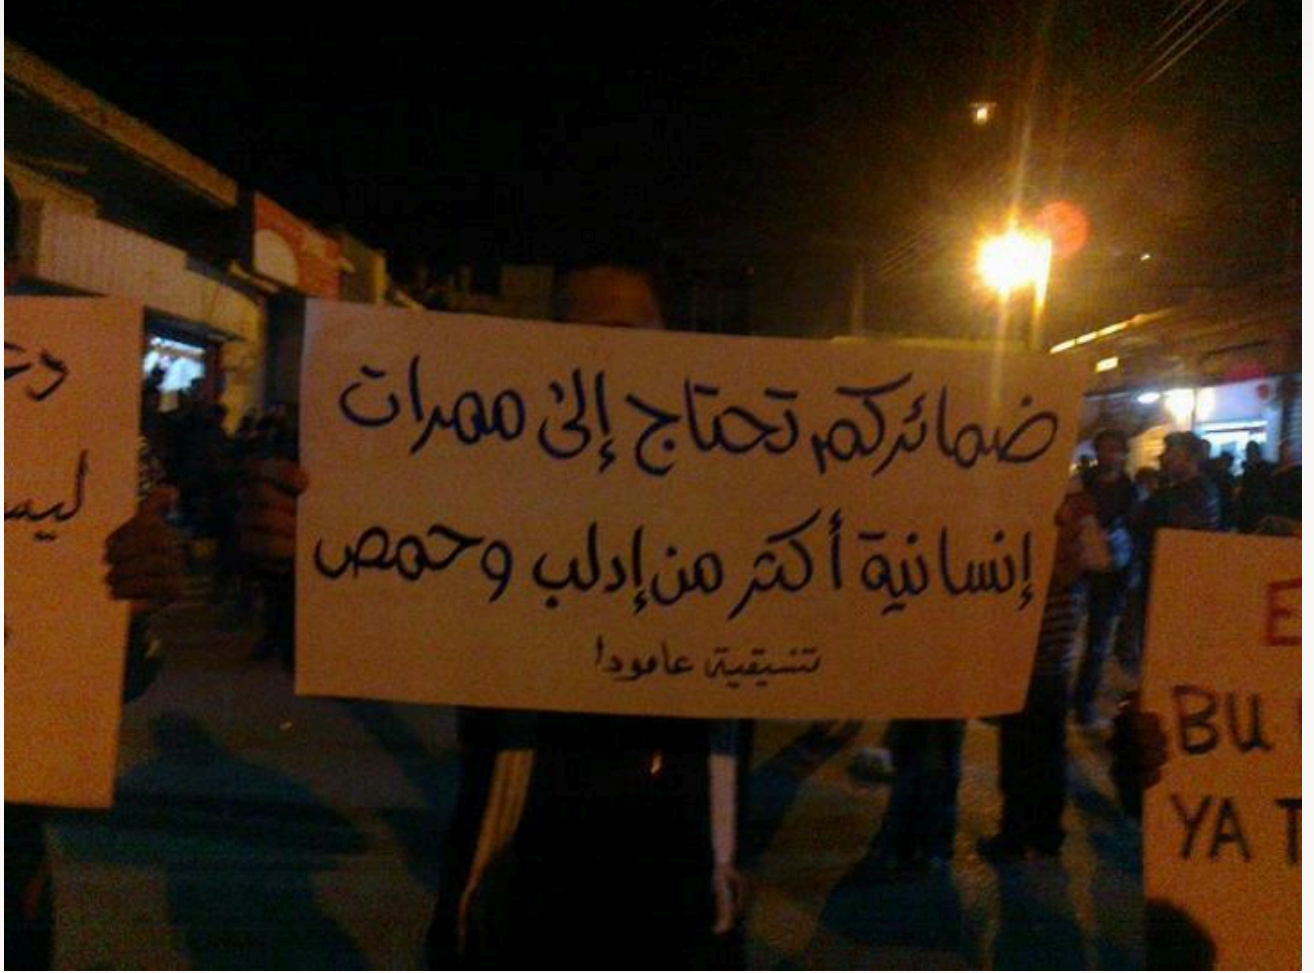 ضمائركم تحتاج إلى ممرات
إنسانية أكثر من إدلب وحمص
تنسيقية عامودا
E
BU
YA T